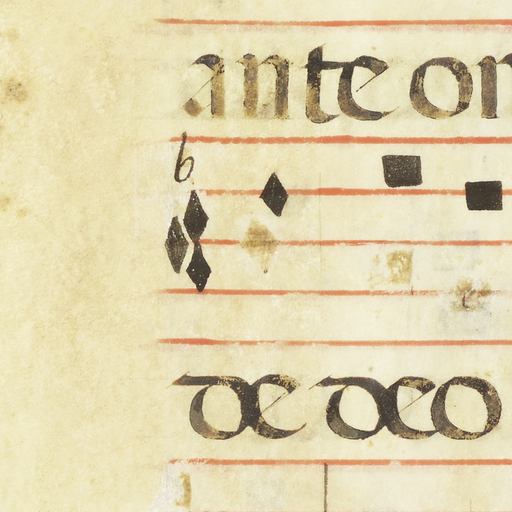 ante om
b
de deo